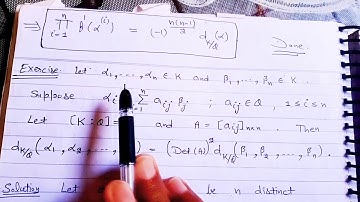 ⇒ n∏i=1 f'(α^(i)) = (-1)^(n(n-1)/2) d_K/Q (α)
Done.
Exercise: Let α1,....,αn ∈ K and β1,...,βn ∈ K.
Suppose αi n∑j=1 aij βj ; aij ∈ Q, 1 ≤ i ≤ n
Let [K:Q]= and A = [aij]n×n. Then
d_K/Q (α1, α2, ..., ) = (Det(A))^2 d_K/Q (β1, β2, ..., βn).
Solution: Let be n distinct